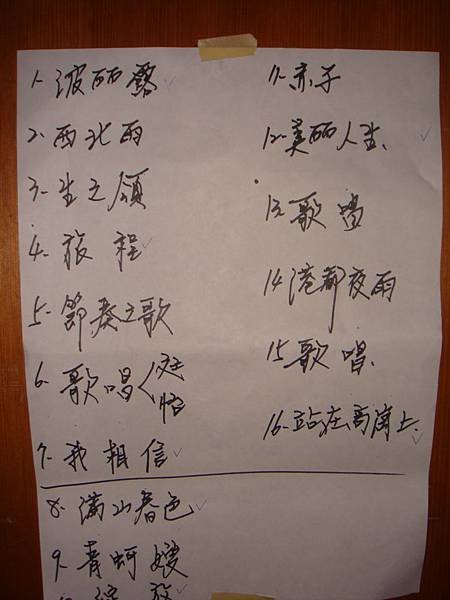 1. 波麗露
2. 西北雨
3. 生之頌
4. 旅程
5. 節奏之歌
6. 歌唱
7. 我相信
8. 滿山春色
9. 青蚵嫂
綻放
11. 赤子
12. 美丽人生
13. 歌唱
14. 港都夜雨
15. 歌唱
16. 站在高崗上